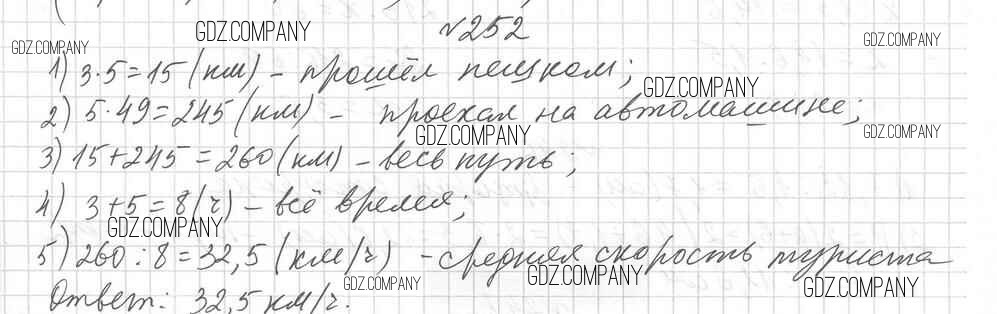 №252
1) 3·5=15 (км) - прошёл пешком;
2) 5·49=245 (км) - проехал на автомашине;
3) 15+245=260 (км) - весь путь;
4) 3+5=8 (ч) - всё время;
5) 260:8=32,5 (км/ч) - средняя скорость туриста
Ответ: 32,5 км/ч.
GDZ.COMPANY
GDZ.COMPANY
GDZ.COMPANY
GDZ.COMPANY
GDZ.COMPANY
GDZ.COMPANY
GDZ.COMPANY
GDZ.COMPANY
GDZ.COMPANY
GDZ.COMPANY